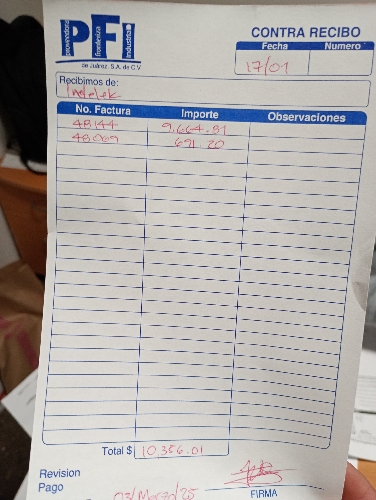 PFI
proveedora
fronteriza
industrial
de Juárez, S.A. de C.V.
CONTRA RECIBO
Fecha Numero
17/01
Recibimos de:
Indelek
No. Factura Importe Observaciones
48144 9,664.81
48069 691.20
Total $ 10,356.01
Revision
Pago 03/Marzo/25
FIRMA